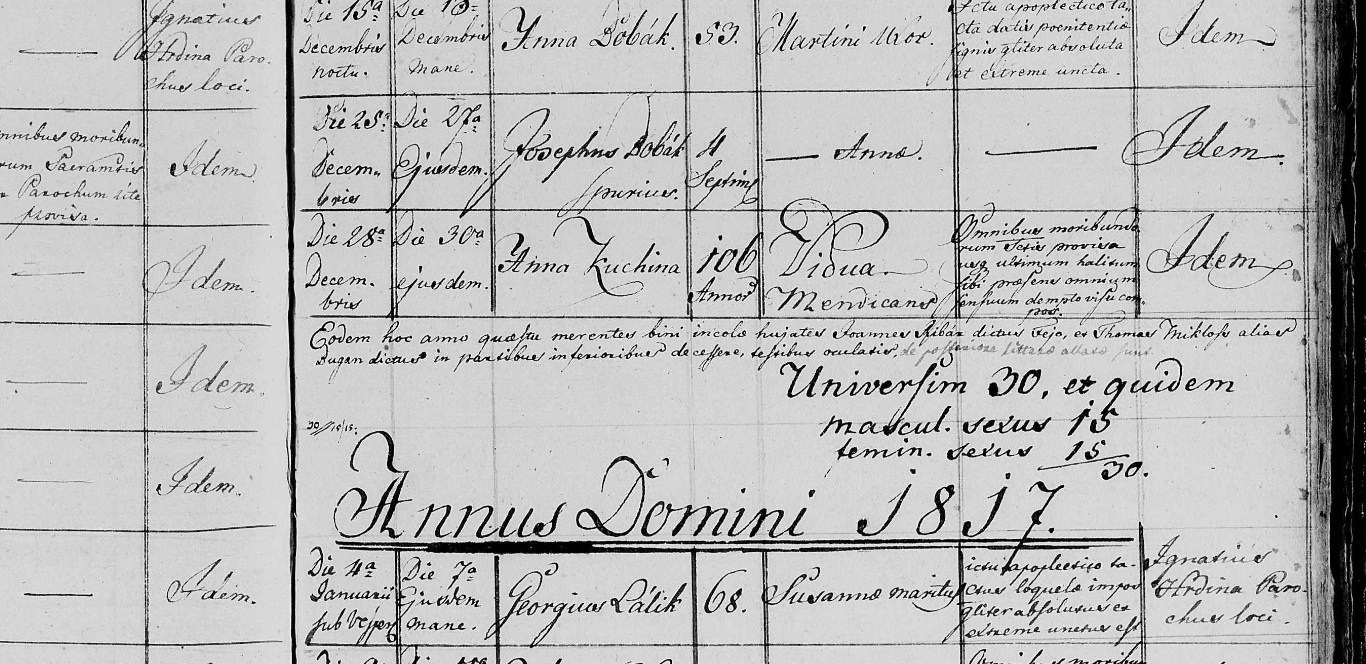 Ignatius
Hrdina Paro-
chus loci.
Die 15ª
Decembris
noctu.
Decembris
mane.
Anna Dobák.
53.
Martini Uxor.
ictu apoplectico ta-
cta datis poenitentiæ
signis gliter absoluta
et extreme uncta.
Idem
omnibus moribun-
rum Sacramtis
Parochum rite
provisa.
Idem.
Die 25ª
Decem-
bris
Die 27ª
Ejusdem.
Josephus Dobák
spurius.
4
Septim
— Annæ.
—
Idem.
—
Idem.
Die 28ª
Decem-
bris
Die 30ª
ejusdem.
Anna Kuchina
106
Annor
Vidua
Mendicans
Omnibus moribundo
rum Sctis provisa
usq ultimum halitum
sibi præsens omnium
ensuum dempto visu com-
pos.
Idem
Eodem hoc anno quæstu merentes bini incolæ hujates Joannes dictus Fejo, et Thomas Mikloss alias
Dugan dictus in partibus inferioribus decessere, testibus oculatis, de allatæ sunt
—
Idem.
Universim 30, et quidem
mascul. sexus 15
femin. sexus 15
30.
30//15/15.
—
Idem.
Annus Domini 1817.
—
Idem.
Die 4ª
Januarii
sub Vesper
Die 7ª
Ejusdem
mane.
Georgius Lálik
68.
Susannæ maritus
ictu apoplectico ta-
ctus loquelæ impos
gliter absolutus et
extreme unctus est
Ignatius
Hrdina Paro-
chus loci.